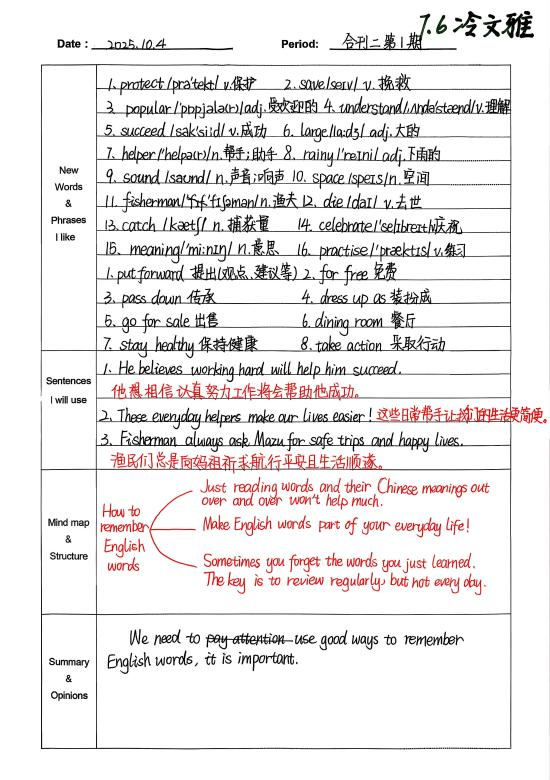 7.6 冷文雅
Date: 2025.10.4 Period: 合刊二第1期
New
Words
&
Phrases
I like
1. protect /prə'tekt/ v.保护 2. save /seɪv/ v. 挽救
3. popular /'pɒpjələ(r)/ adj.受欢迎的 4. understand /ˌʌndə'stænd/ v.理解
5. succeed /sək'siːd/ v.成功 6. large /lɑːdʒ/ adj.大的
7. helper /'helpə(r)/ n.帮手;助手 8. rainy /'reɪni/ adj.下雨的
9. sound /saʊnd/ n.声音;响声 10. space /speɪs/ n.空间
11. fisherman /'fɪʃəmən/ n.渔夫 12. die /daɪ/ v.去世
13. catch /kætʃ/ n.捕获量 14. celebrate /'selɪbreɪt/ 庆祝
15. meaning /'miːnɪŋ/ n.意思 16. practise /'præktɪs/ v.练习
1. put forward 提出(观点、建议等) 2. for free 免费
3. pass down 传承 4. dress up as 装扮成
5. go for sale 出售 6. dining room 餐厅
7. stay healthy 保持健康 8. take action 采取行动
Sentences
I will use
1. He believes working hard will help him succeed.
他想相信认真努力工作将会帮助他成功。
2. These everyday helpers make our lives easier! 这些日常帮手让我们的生活更简便。
3. Fisherman always ask Mazu for safe trips and happy lives.
渔民们总是向妈祖祈求航行平安且生活顺遂。
Mind map
&
Structure
How to
remember
English
words
Just reading words and their Chinese meanings out
over and over won't help much.
Make English words part of your everyday life!
Sometimes you forget the words you just learned.
The key is to review regularly, but not every day.
Summary
&
Opinions
We need to pay attention use good ways to remember
English words, it is important.